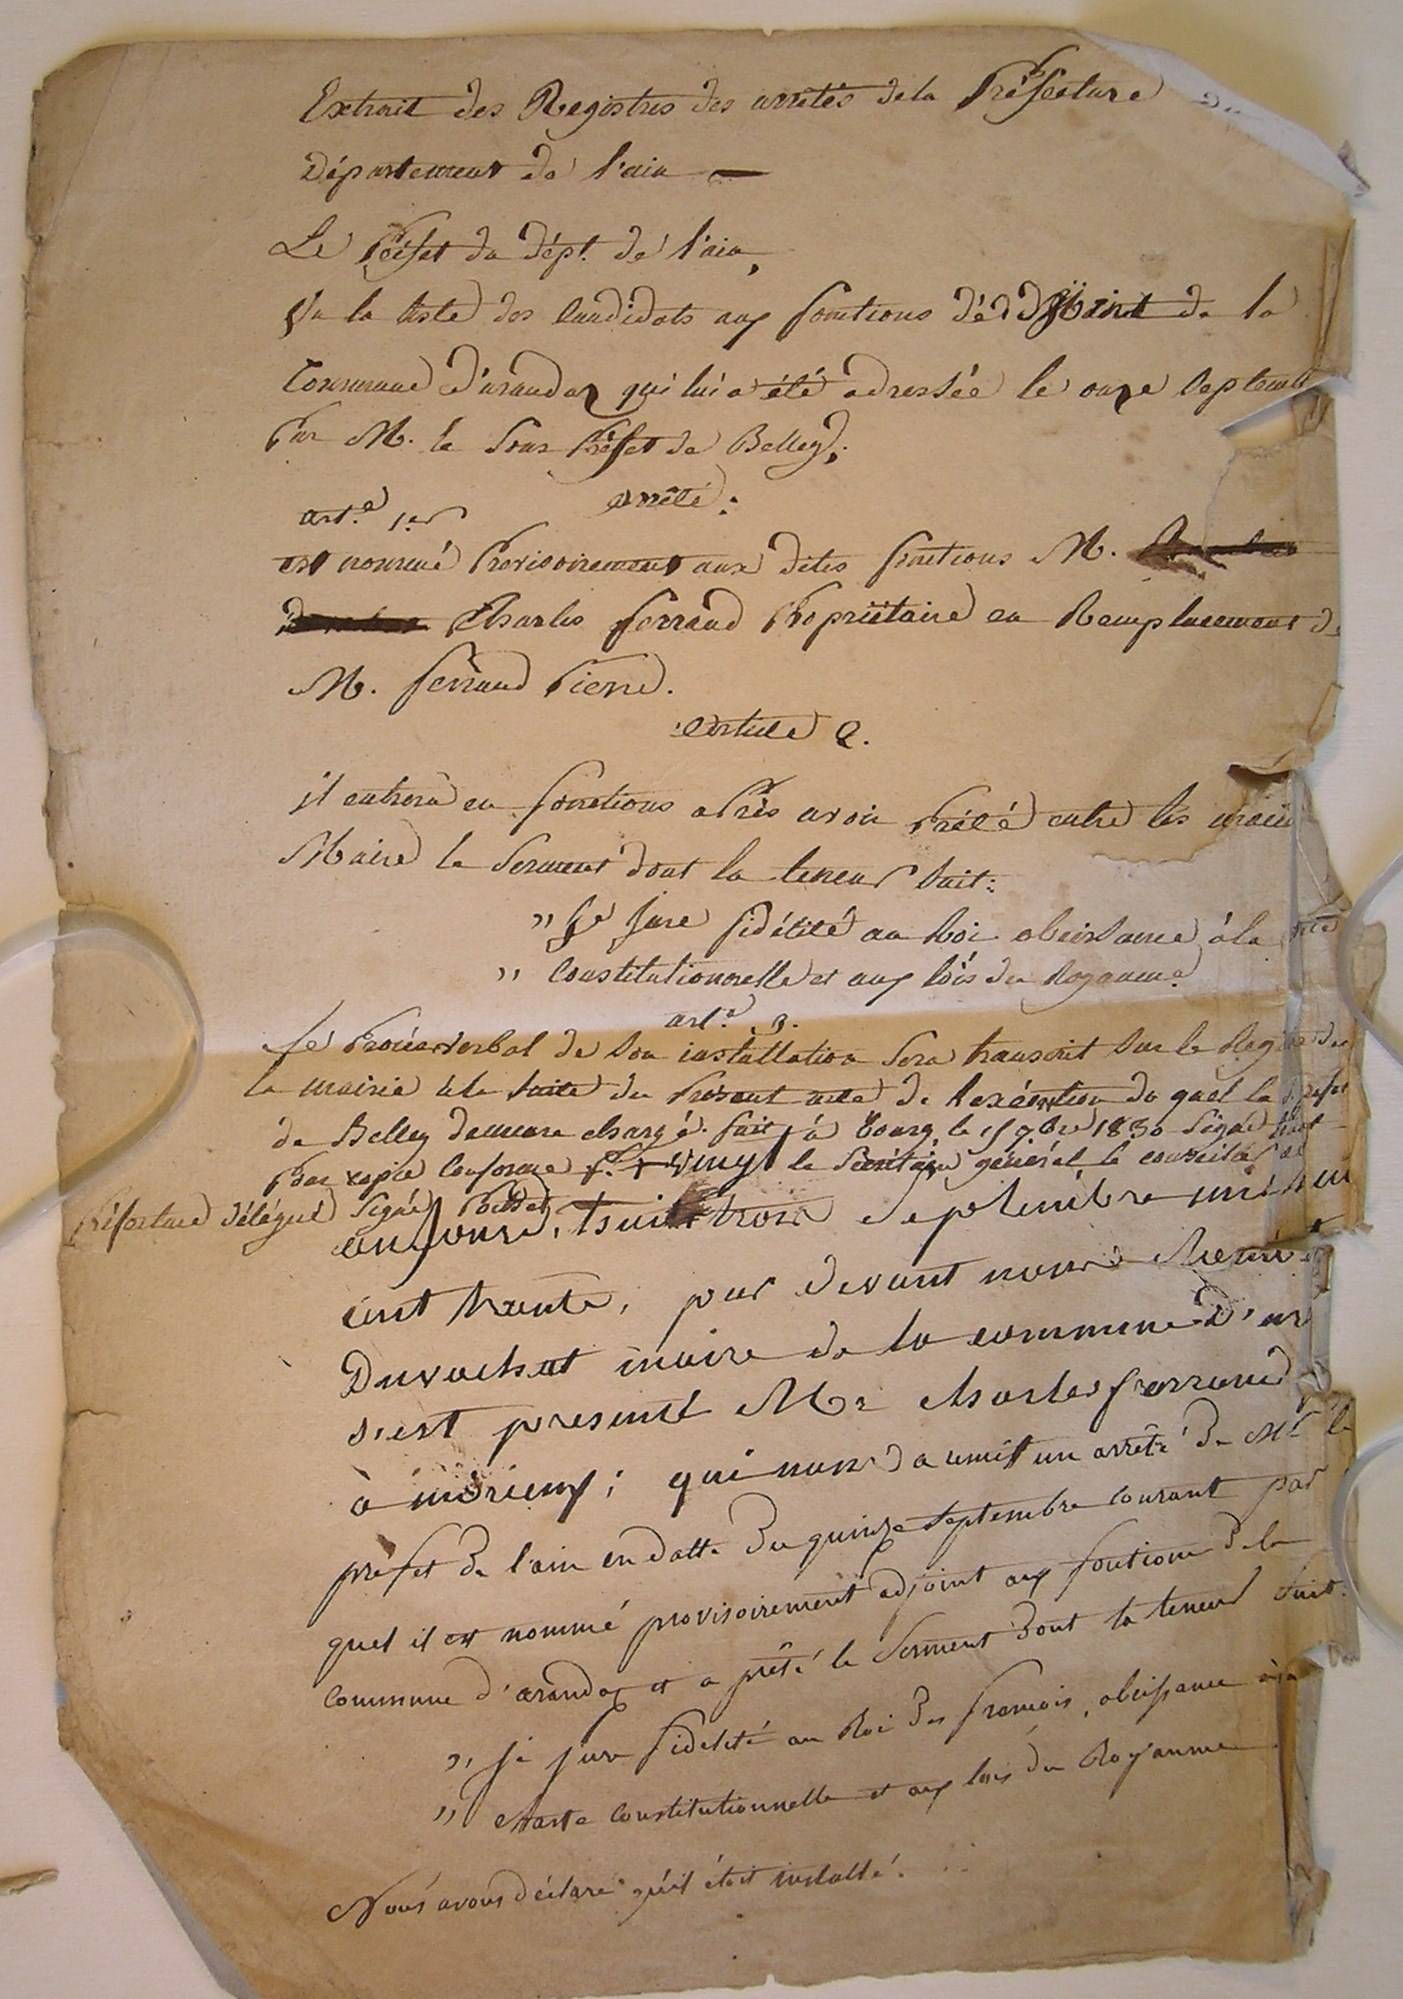 Extrait des Registres des arrêtés de la Préfecture du
Département de l'ain
Le Préfet du dépt. de l'ain,
Vu la liste des Candidats aux fonctions d'adjoint de la
Commune d'arandas qui lui a été adressée le onze Septembre
Par M. le Sous Préfet de Belley;
arrêté:
art.e 1.er
est nommé Provisoirement aux dites fonctions M.
Charles ferrand Propriétaire en Remplacement de
M. ferrand Pierre.
article 2.
il entrera en fonctions après avoir Prêté entre les mains
Maire le Serment dont la teneur Suit:
" Je Jure fidélité au Roi obeissance à la
" Constitutionnelle et aux lois du Royaume
art.e 3.
le Procès verbal de Son installation Sera transcrit Sur le Registre de
la mairie à la Suite du Présent de Lexécution du quel le S. Préfet
de Belley demeure chargé. fait à Bourg le 15 7bre 1830 Signé
Pour copie Conforme le Secrétaire général le conseiller de
Préfecture délégué Signé
aujourd'huit trois Septembre mil huit
cent trente, par devant nous
Duvachat maire de la commune d'ar
s'est presenté Mr charles ferrand
à ; qui nous a remit un arrêté de Mr le
préfet de l'ain en datte du quinze Septembre Courant par
quel il est nommé provisoirement adjoint aux fontions de la
Commune d'arandas et a prêté le Serment dont la teneur Suit.
" Je jure fidelité au Roi des français, obeissance à la
" Charte Constitutionnelle et aux lois du Royaume
Nous avons déclaré qu'il étoit installé.